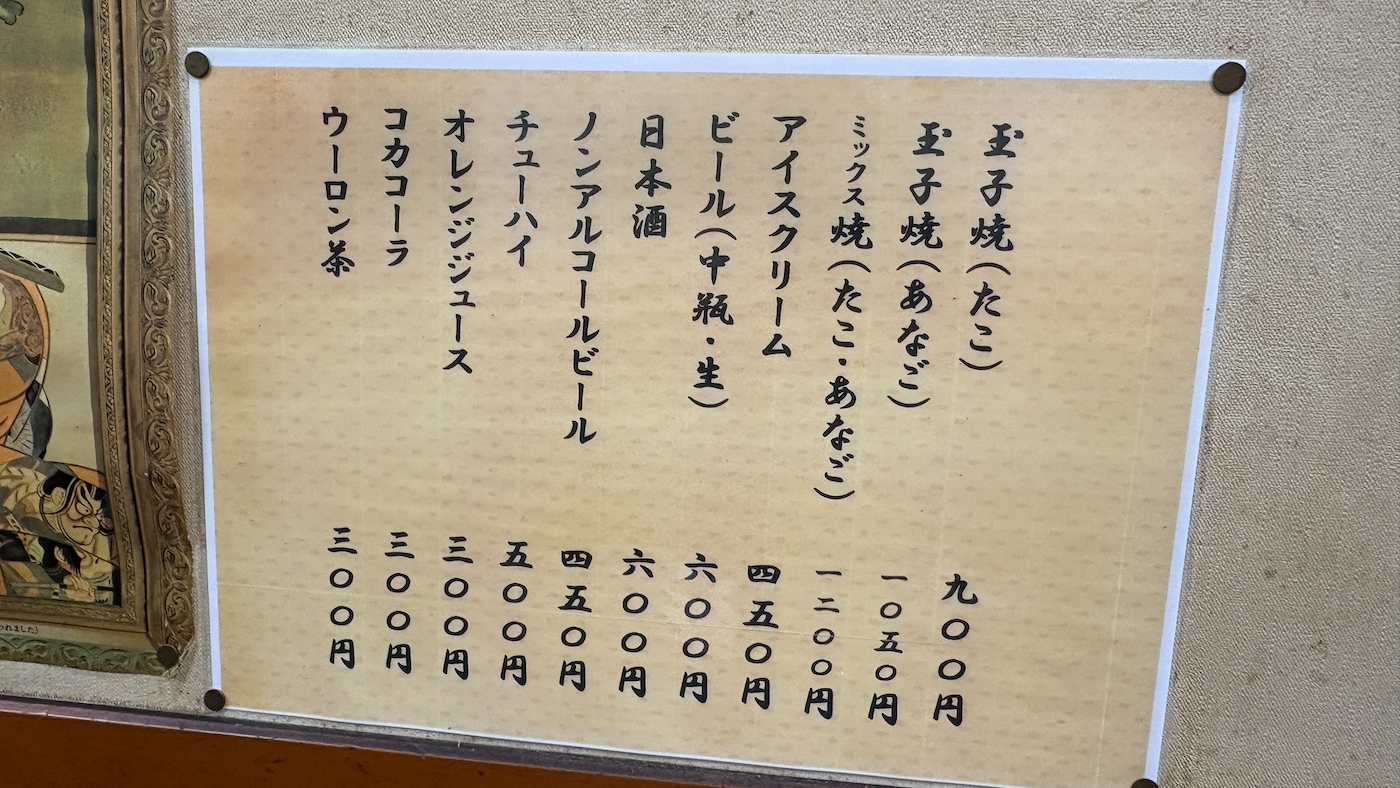 玉子焼(たこ) 九〇〇円
玉子焼(あなご) 一〇五〇円
ミックス焼(たこ・あなご) 一二〇〇円
アイスクリーム 四五〇円
ビール(中瓶・生) 六〇〇円
日本酒 六〇〇円
ノンアルコールビール 四五〇円
チューハイ 五〇〇円
オレンジジュース 三〇〇円
コカコーラ 三〇〇円
ウーロン茶 三〇〇円
われました)